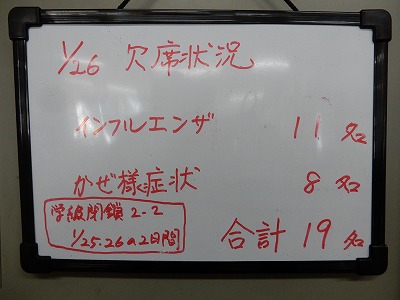 1/26 欠席状況
インフルエンザ 11名
かぜ様症状 8名
学級閉鎖 2-2
1/25.26の2日間
合計 19名